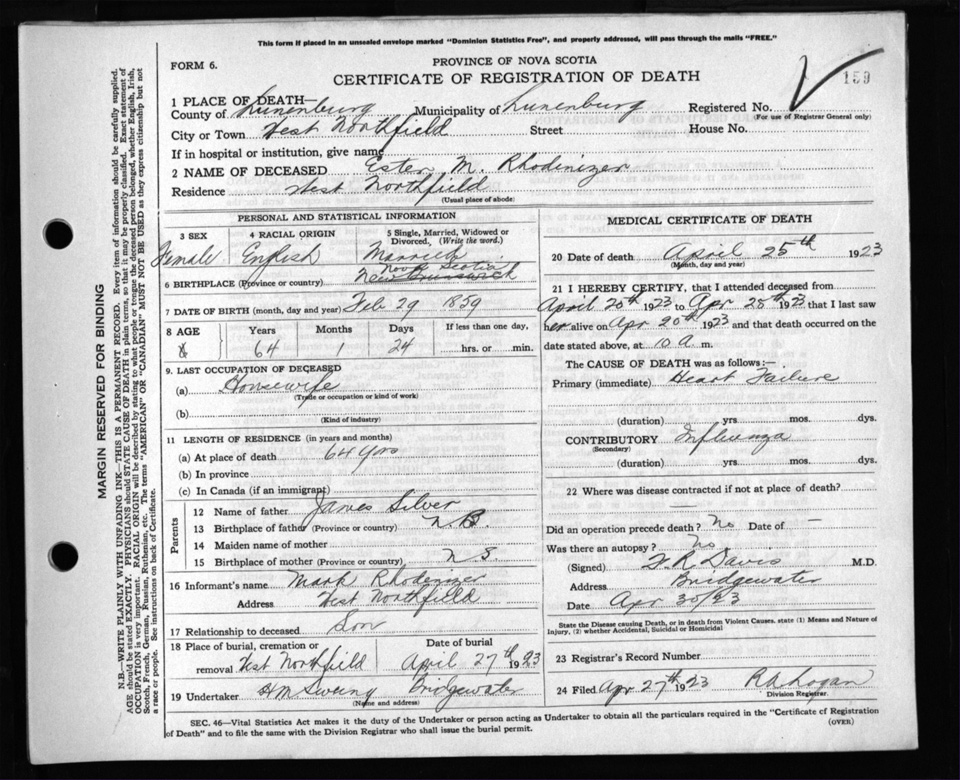 This form if placed in an unsealed envelope marked "Dominion Statistics Free", and properly addressed, will pass through the mails "FREE."
FORM 6.
PROVINCE OF NOVA SCOTIA
CERTIFICATE OF REGISTRATION OF DEATH
159
1 PLACE OF DEATH—
County of Lunenburg Municipality of Lunenburg Registered No.
(For use of Registrar General only)
City or Town West Northfield Street House No.
If in hospital or institution, give name
2 NAME OF DECEASED Ester M. Rhodenizer
Residence West Northfield
(Usual place of abode)
PERSONAL AND STATISTICAL INFORMATION
3 SEX 4 RACIAL ORIGIN 5 Single, Married, Widowed or Divorced. (Write the word.)
Female English Married
Nova Scotia
6 BIRTHPLACE (Province or country) New Brunswick
7 DATE OF BIRTH (month, day and year) Feb 29 1859
8 AGE Years Months Days If less than one day,
64 1 24 hrs. or min.
9. LAST OCCUPATION OF DECEASED
(a) Housewife
(Trade or occupation or kind of work)
(b)
(Kind of industry)
11 LENGTH OF RESIDENCE (in years and months)
(a) At place of death 64 yrs
(b) In province
(c) In Canada (if an immigrant)
Parents
12 Name of father James Silver
13 Birthplace of father (Province or country) N.B.
14 Maiden name of mother
15 Birthplace of mother (Province or country) N S.
16 Informant's name Mark Rhodenizer
Address West Northfield
17 Relationship to deceased Son
18 Place of burial, cremation or removal West Northfield Date of burial April 27th 1923
19 Undertaker H M Sweing Bridgewater
(Name and address)
MEDICAL CERTIFICATE OF DEATH
20 Date of death April 25th 1923
(Month, day and year)
21 I HEREBY CERTIFY, that I attended deceased from
April 20th 1923 to Apr 25th 1923 that I last saw
her alive on Apr 20th 1923 and that death occurred on the
date stated above, at 10 a m.
The CAUSE OF DEATH was as follows:—
Primary (immediate) Heart Failure
(duration) yrs. mos. dys.
CONTRIBUTORY Influenza
(Secondary)
(duration) yrs. mos. dys.
22 Where was disease contracted if not at place of death?
Did an operation precede death? No Date of —
Was there an autopsy? No
(Signed) F R Davis M.D.
Address Bridgewater
Date Apr 30/23
State the Disease causing Death, or in death from Violent Causes. state (1) Means and Nature of
Injury, (2) whether Accidental, Suicidal or Homicidal
23 Registrar's Record Number
24 Filed Apr 27th 1923 R A Logan
Division Registrar
SEC. 46—Vital Statistics Act makes it the duty of the Undertaker or person acting as Undertaker to obtain all the particulars required in the "Certificate of Registration
of Death" and to file the same with the Division Registrar who shall issue the burial permit.
(OVER)
MARGIN RESERVED FOR BINDING
N.B.—WRITE PLAINLY WITH UNFADING INK—THIS IS A PERMANENT RECORD. Every item of information should be carefully supplied.
AGE should be stated EXACTLY. PHYSICIANS should STATE CAUSE OF DEATH in plain terms, so that it may be properly classified. Exact statement of
OCCUPATION is very important. RACIAL ORIGIN will be described by stating to what people or tongue the deceased person belonged, whether English, Irish,
Scotch, French, German, Russian, Ruthenian, etc. The terms "AMERICAN" OR "CANADIAN" MUST NOT BE USED as they express citizenship but not
a race or people. See instructions on back of Certificate.